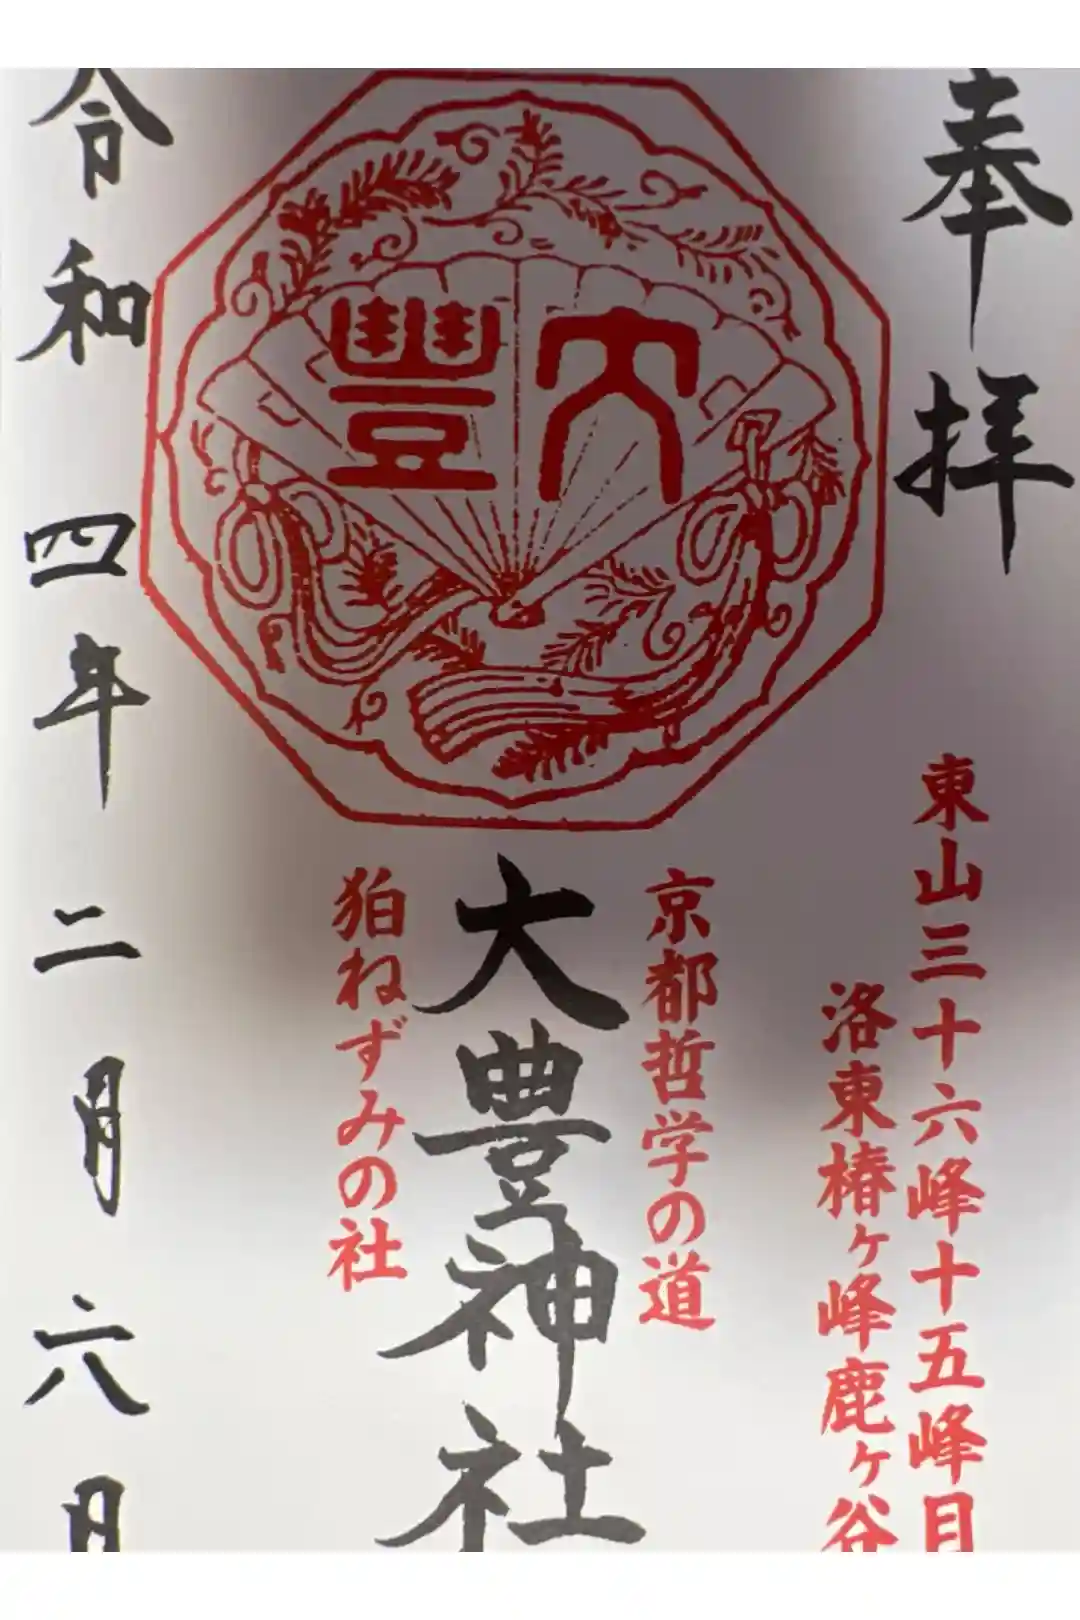 奉拝
東山三十六峰十五峰目
洛東椿ヶ峰鹿ヶ谷
大豐
京都哲学の道
大豊神社
狛ねずみの社
令和四年二月六日